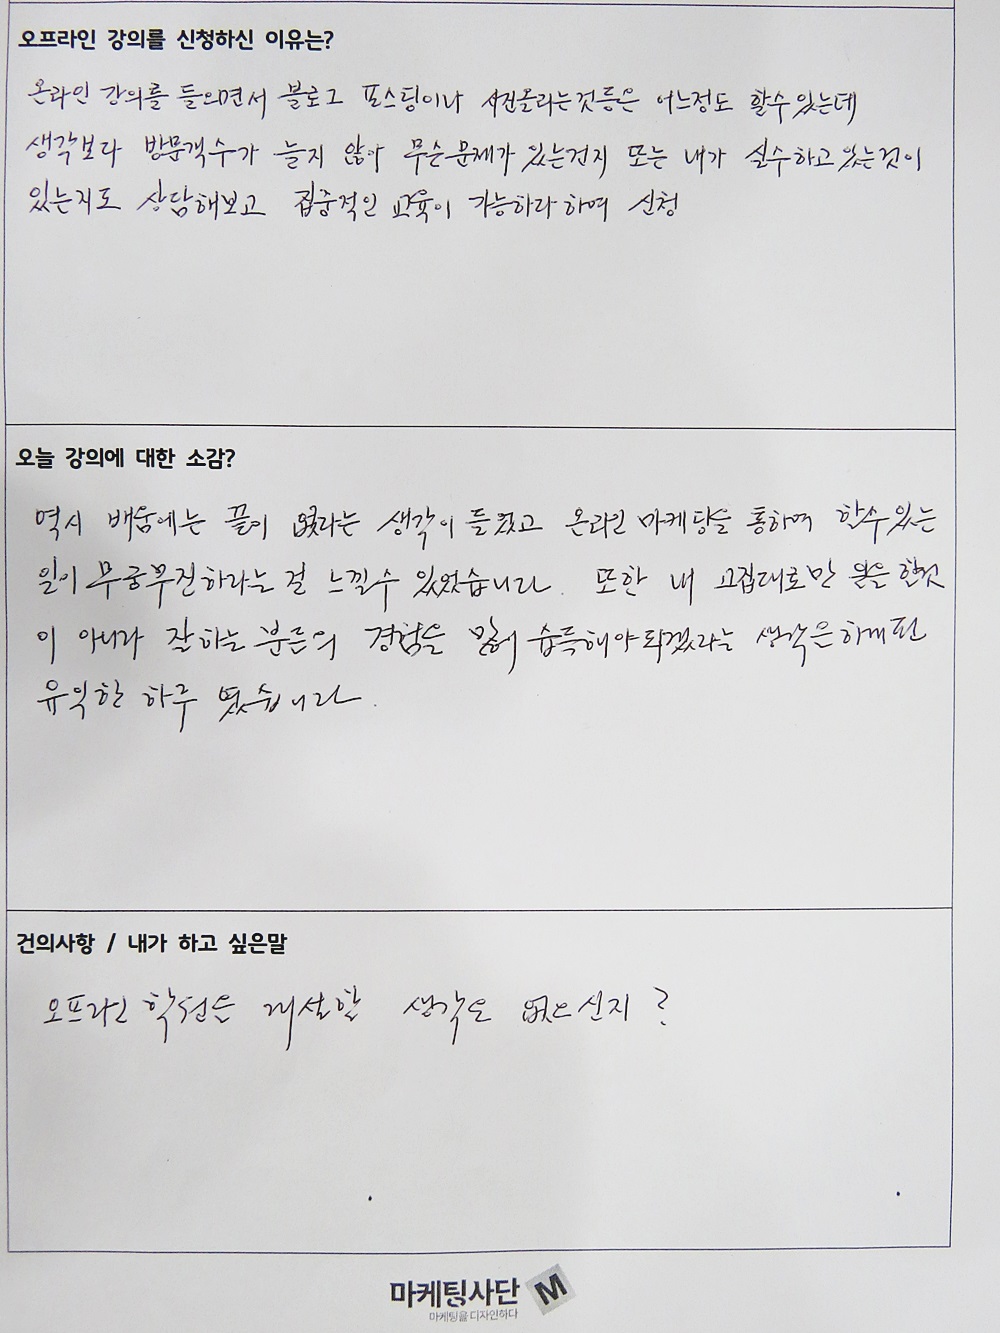 오프라인 강의를 신청하신 이유는?
온라인 강의를 들으면서 블로그 포스팅이나 사진올리는것등은 어느정도 할수 있는데
생각보다 방문객수가 늘지 않아 무슨문제가 있는건지 또는 내가 실수하고 있는것이
있는지도 상담해보고 집중적인 교육이 가능하라 하여 신청
오늘 강의에 대한 소감?
역시 배움에는 끝이 없다라는 생각이 들었고 온라인 마케팅을 통하여 할수있는
일이 무궁무진하라는 걸 느낄수 있었습니다. 또한 내 고집대로만
이 아니라 잘하는 분들의 경험을 습득해야되겠라는 생각은하게된
유익한 하루 였습니다.
건의사항 / 내가 하고 싶은말
오프라인 학원은 개설할 생각은 없으신지?
마케팅사단 M
마케팅을 디자인하다